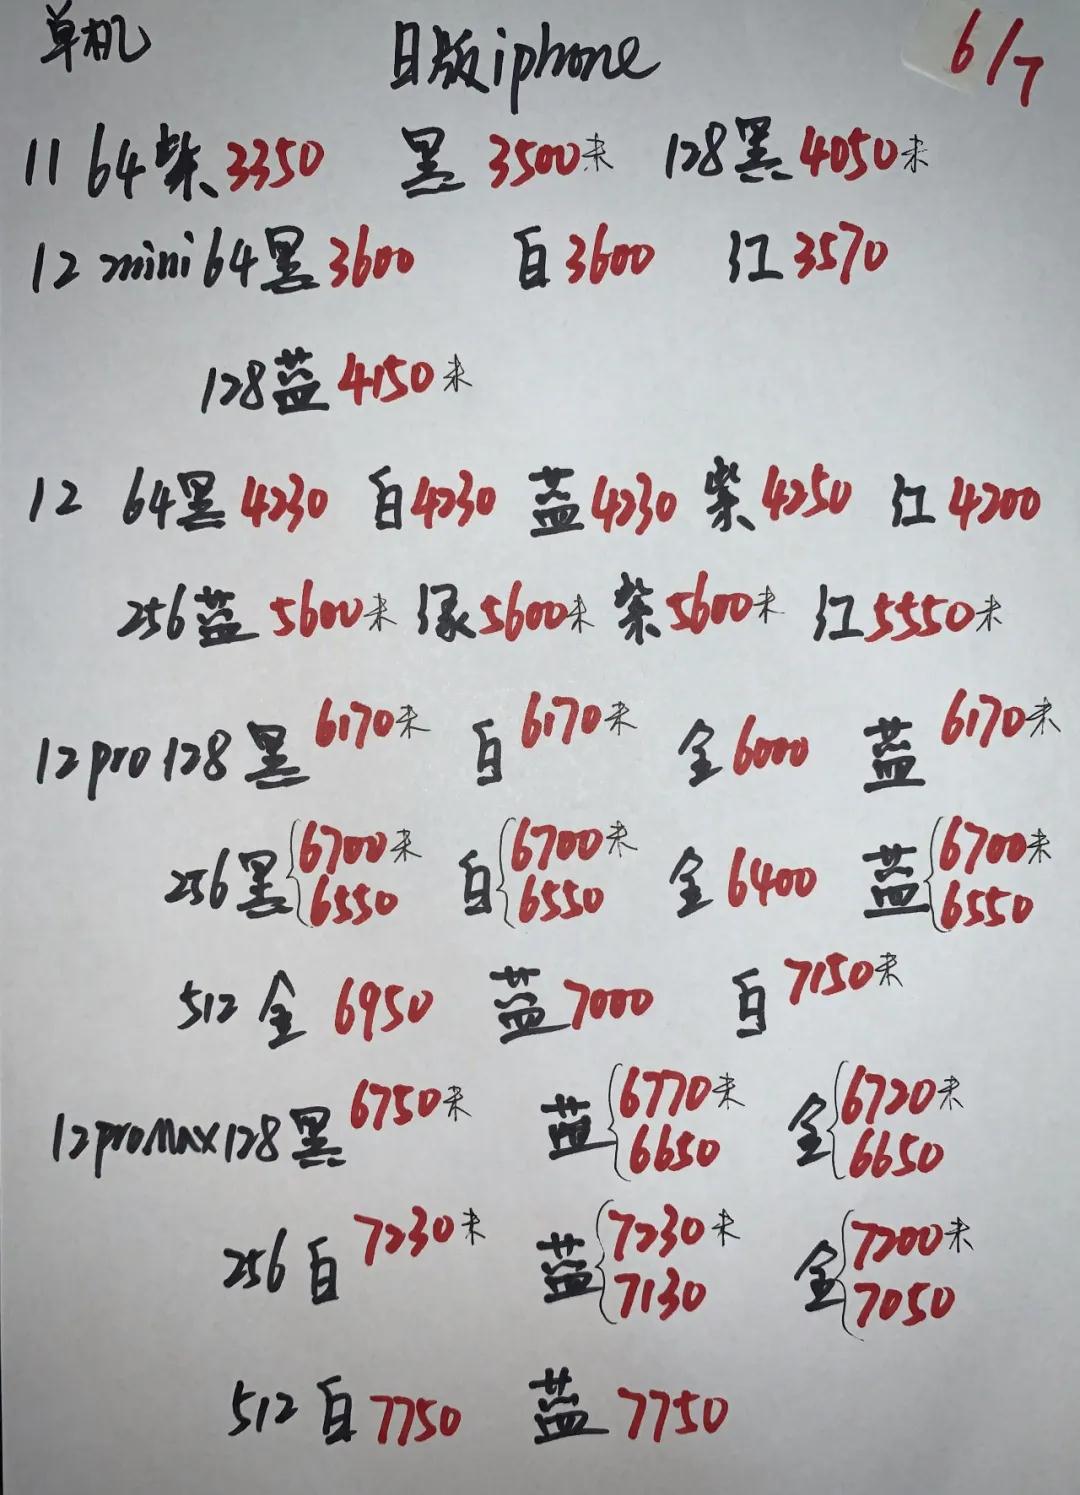 单机 日版iphone 6/7
11 64紫3350 黑3500未 128黑4050未
12mini 64黑3600 白3600 红3570
128蓝4150未
12 64黑4230 白4230 蓝4230 紫4250 红4200
256蓝5600未 绿5600未 紫5600未 红5550未
12pro 128黑6170未 白6170未 金6000 蓝6170未
256黑{6700未 白{6700未 金6400 蓝{6700未
6550 6550 6550
512金6950 蓝7000 白7150未
12proMax128黑6750未 蓝{6770未 金{6720未
6650 6650
256白7230未 蓝{7230未 金{7200未
7130 7050
512白7750 蓝7750